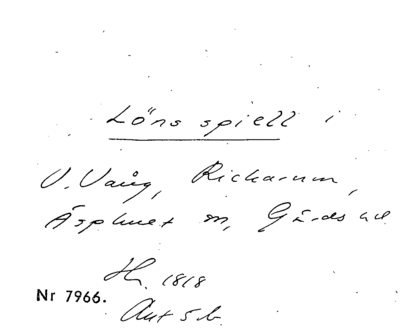 Lönsspiell i
V. Vång, Rickarum,
Äsphult m, Gärds hd
Hn. 1818
Nr 7966.
Ant 5 b.